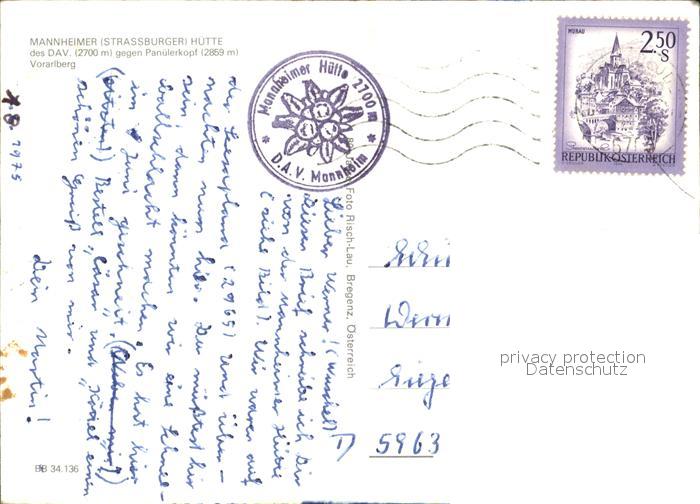 MANNHEIMER (STRASSBURGER) HÜTTE
des DAV. (2700 m) gegen Panülerkopf (2859 m)
Vorarlberg
Mannheimer Hütte 2700 m
* D.A.V. Mannheim *
MURAU
2.50
S
REPUBLIK ÖSTERREICH
Foto Risch-Lau, Bregenz, Österreich
8. 1975
Lieber Werner! (Wuschel)
Diesen Brief schreibe ich Dir
von der Mannheimer Hütte
(siehe Bild). Wir waren auf
der Scesaplana (2965) und über-
nachten nun hier. Du müßtest hier
sein dann könnten wir eine Schnee-
ballschlacht machen. Es hat hier
im Juni geschneit.
Bestell, Cäsar und
einen
schönen Gruß von mir.
Dein Martin!
Wern
D 5963
BB 34.136
privacy protection
Datenschutz